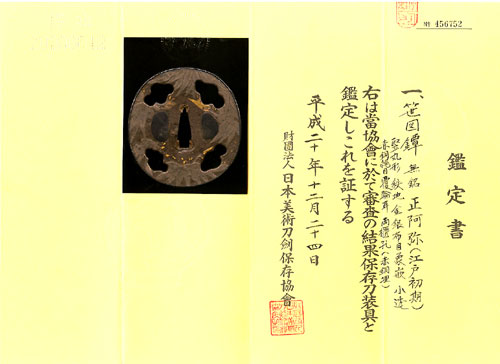 № 456752
鑑定書
一、笹図鐔 無銘 正阿弥(江戸初期)
竪丸形 鉄地 金銀布目象嵌 小透
赤銅 覆輪耳 両櫃孔(赤銅埋)
右は當協會に於て審査の結果保存刀装具と
鑑定しこれを証する
平成二十年十二月二十四日
財團法人 日本美術刀劍保存協會